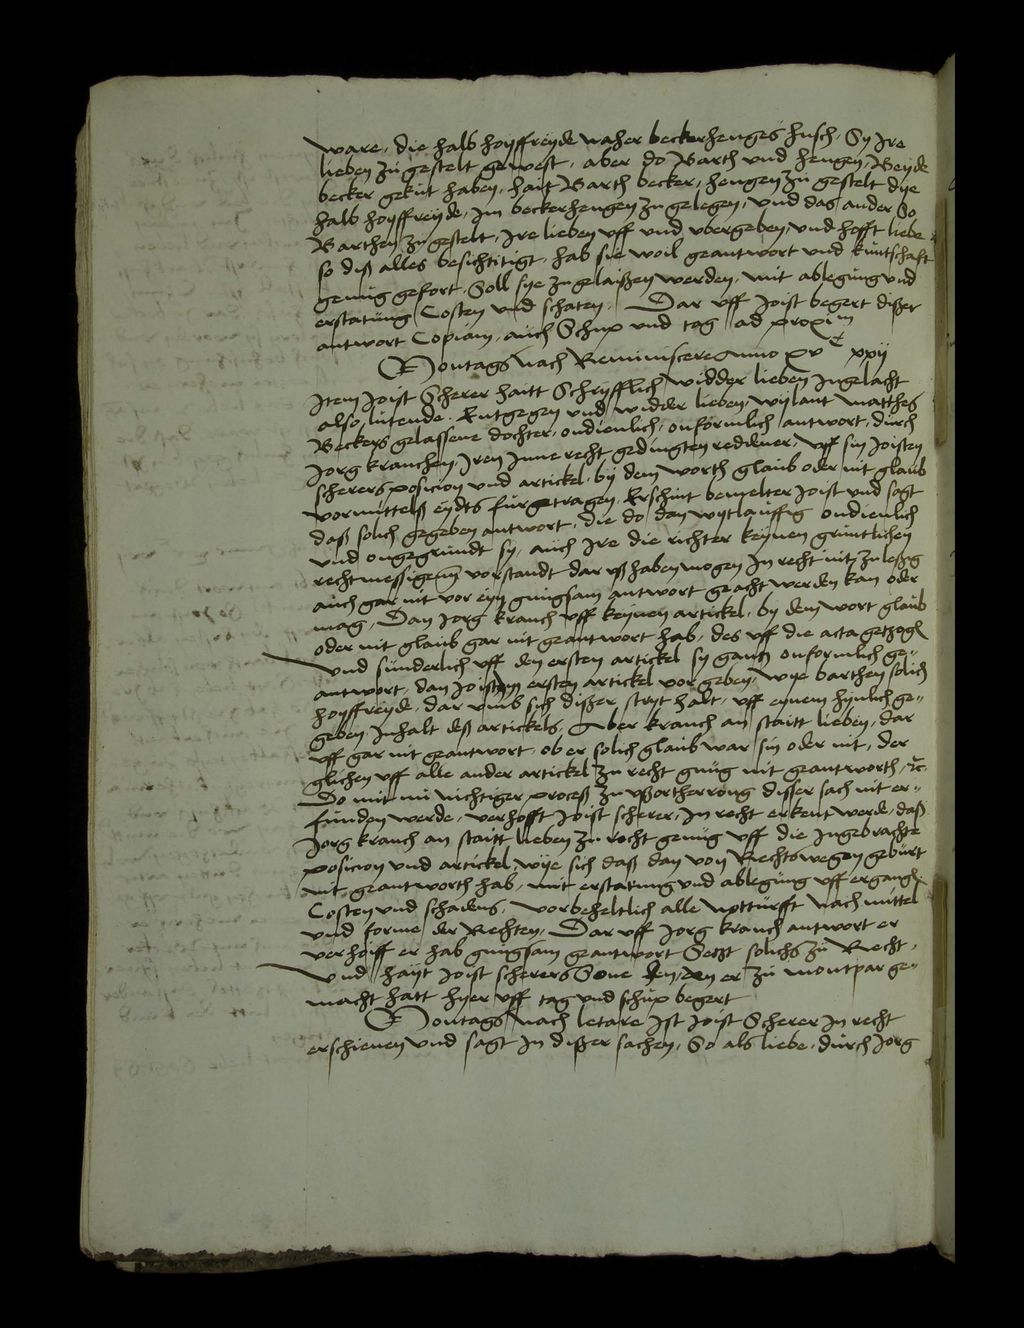 ware, die halb hoyffreyde naher beckerhenges husch, Sy Ire
lieben zu gestelt gewest, aber do Barth und hengen, Beyde
becker gekut haben, hait Barth becker, hengen zu gestelt dye
halb hoyffreyde, Im beckerhengen zu gelegen, und das ander So
Barthen zu gestelt, Ire lieben uff und ubergeben, und hofft liebe
so diß alles besichtitigt, hab sie woil geantwort und kuntschafft
genug gefort, Soll sye zugelaißen werden, mit ablegung und
erstatung Costen und schaten, Dar uff Joist begert dißer
antwort Copiam, auch Schup und tag ad proximum
Montags nach Reminiscere Anno xvc xxij
Item Joist Scherer haitt Schryfftlich widder lieben Ingelacht
also lutende, Entgegen und widder lieben, wylant Matthes
Beckers gelassene dochter, ondienlich, onformlich antwort, durch
Jorg krauchen, Iren Inne recht gedingten reddener, uff sin Joisten
scherers posicion und artickel, by dem worth glaub oder nit glaub
vormittelß eydts fürgetragen, Erschint bemelter Joist und sagt
daß solich gegeben antwort, die do dan wytlauffig ondienlich
und ongegrundt sy, auch Ire die richter keynen gruntlichen
rechtmessigenn vorstandt dar uß haben mogen In recht nit zulessig
auch gar nit vor eyn gnugsam antwort geacht werden kan oder
mag, Dan Jorg krauch uff keynen artickel, by dem wort glaub
oder nit glaub gar nit geantwort hab, des uff die acta getzogen
Und sünderlich uff den ersten artickel sy gantz onformlich ge-
antwort, dan Joist Im ersten artickel vorgeben, wye barthen solich
hoyffreyde, dar umb sich dißer stryt halt, uff eynem hynlich ge-
geben Inhalt deß artickels, Aber krauch an staitt lieben, dar
uff gar nit geantwort, ob er solich glaub war sin oder nit, der
glichen uff alle ander artickel zu recht gnug nit geantworth, etc.
Do mit nu nichtiger proceß zu ußortherrong disser sach nit er-
funden werde, verhofft Joist scherer, In recht erkent werde, daß
Jorg krauch an staitt lieben zu recht genug uff die Ingebrachte
posicion und artickel wye sich daß dan von Rechtswegen gebürt
nit geantworth hab, mit erstatung und ablegung uff ergangen
Costen und schadens, vorbeheltlich alle nottürfft nach mittel
und forme der Rechten, Dar uff Jorg krauch antwort er
verhoff er hab gnugsam geantwort Setzt solichs zu Recht,
Und hayt Joist scherers Sone den er zu montpar ge-
macht hatt hyer uff tag und schup begert
Montags nach letare Ist Joist Scherer In recht
erschienen und sagt In dißer sachen, So als liebe, durch Jorg